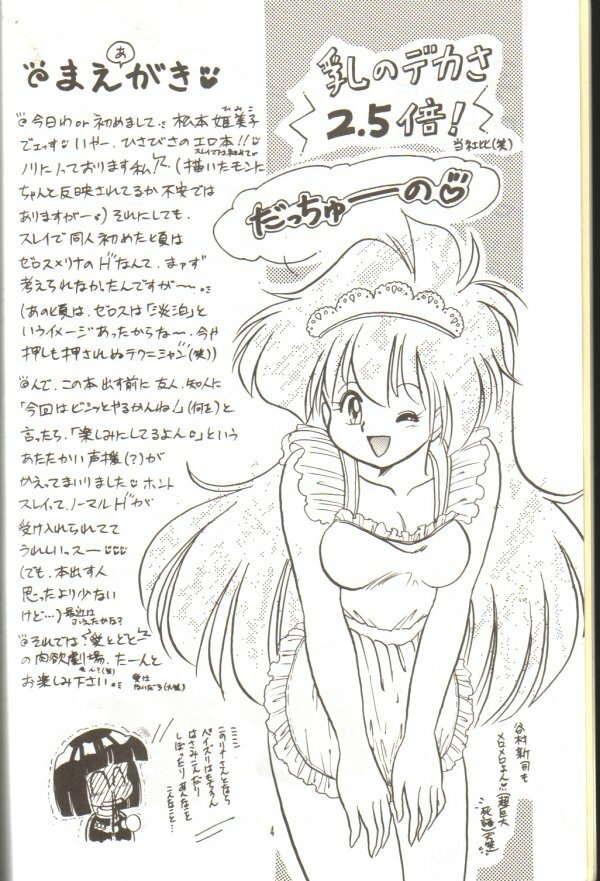 まえがき
あ
今日わor初めまして。松本 姫美子
でェっす いやー、ひさびさのエロ本!!
ノリにノっております私 (描いたモンに
ちゃんと反映されてるか不安では
ありますがー) それにしても、
スレイで同人初めた頃は
ゼロスメリナのHなんて、まァず
考えられなかったんですが〜。
(あの頃は、ゼロスは「淡泊」と
いうイメージあったからな〜、今や
押しも押されぬテクニシャン(笑))
んで、この本出す前に友人、知人に
「今回はビシッとやるかんね!」(何を)と
言ったら、「楽しみにしてるよん」という
あたたかい声援(?)が
かえってまいりました ホント
スレイって、ノーマルHが
受け入れられてて
うれしいっスー
(でも、本出す人
思ったより少ない
けど…)
それでは
の肉欲劇場、たーんと
お楽しみ下さい。
乳しのデカさ
2.5倍!
当社比(笑)
だっちゅーの
ミミン
このリナさんとなら
パイズリはもちろん
はさみこんだり
しぼったりあんなこと
こんなこと…
谷村新司も
メロメロよん
(超巨大
死語)
4